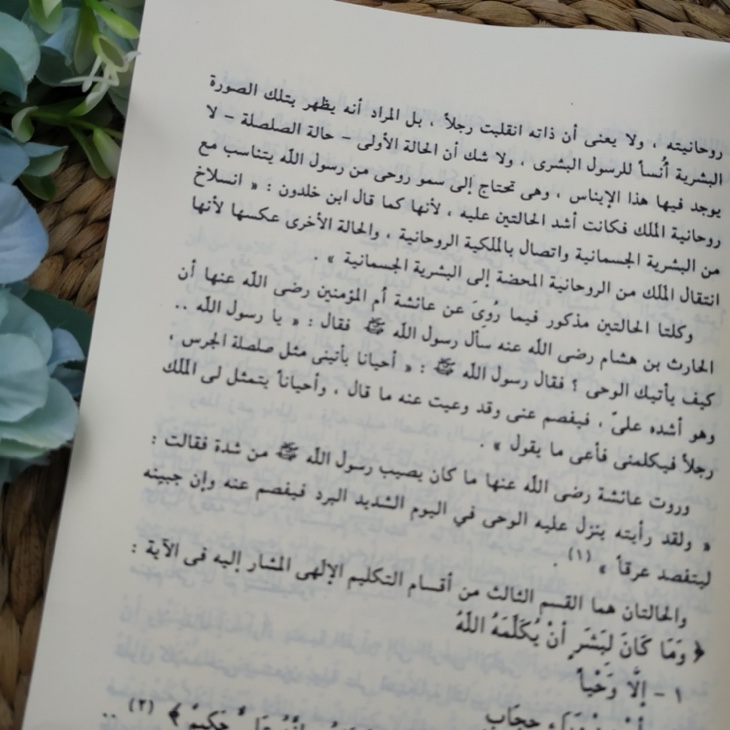 روحانيته ، ولا يعنى أن ذاته انقلبت رجلاً ، بل المراد أنه يظهر بتلك الصورة
البشرية أُنساً للرسول البشرى ، ولا شك أن الحالة الأولى – حالة الصلصلة – لا
يوجد فيها هذا الإيناس ، وهى تحتاج إلى سمو روحى من رسول الله يتناسب مع
روحانية الملك فكانت أشد الحالتين عليه ، لأنها كما قال ابن خلدون : « انسلاخ
من البشرية الجسمانية واتصال بالملكية الروحانية ، والحالة الأخرى عكسها لأنها
انتقال الملك من الروحانية المحضة إلى البشرية الجسمانية » .
وكلتا الحالتين مذكور فيما رُوِىَ عن عائشة أم المؤمنين رضى الله عنها أن
الحارث بن هشام رضى الله عنه سأل رسول الله ﷺ فقال : « يا رسول الله ..
كيف يأتيك الوحى ؟ فقال رسول الله ﷺ : « أحيانا يأتينى مثل صلصلة الجرس ،
وهو أشده علىّ ، فيفصم عنى وقد وعيت عنه ما قال ، وأحياناً يتمثل لى الملك
رجلاً فيكلمنى فأعى ما يقول » .
وروت عائشة رضى الله عنها ما كان يصيب رسول الله ﷺ من شدة فقالت :
« ولقد رأيته ينزل عليه الوحى في اليوم الشديد البرد فيفصم عنه وإن جبينه
ليتفصد عرقاً » (١) .
والحالتان هما القسم الثالث من أقسام التكليم الإلهى المشار إليه فى الآية :
﴿ وَمَا كَانَ لِبَشَرٍ أَنْ يُكَلِّمَهُ اللَّهُ
١ – إِلَّا وَحْياً
حِجَابٍ
حَكِيمٌ ﴾ (٢) ..